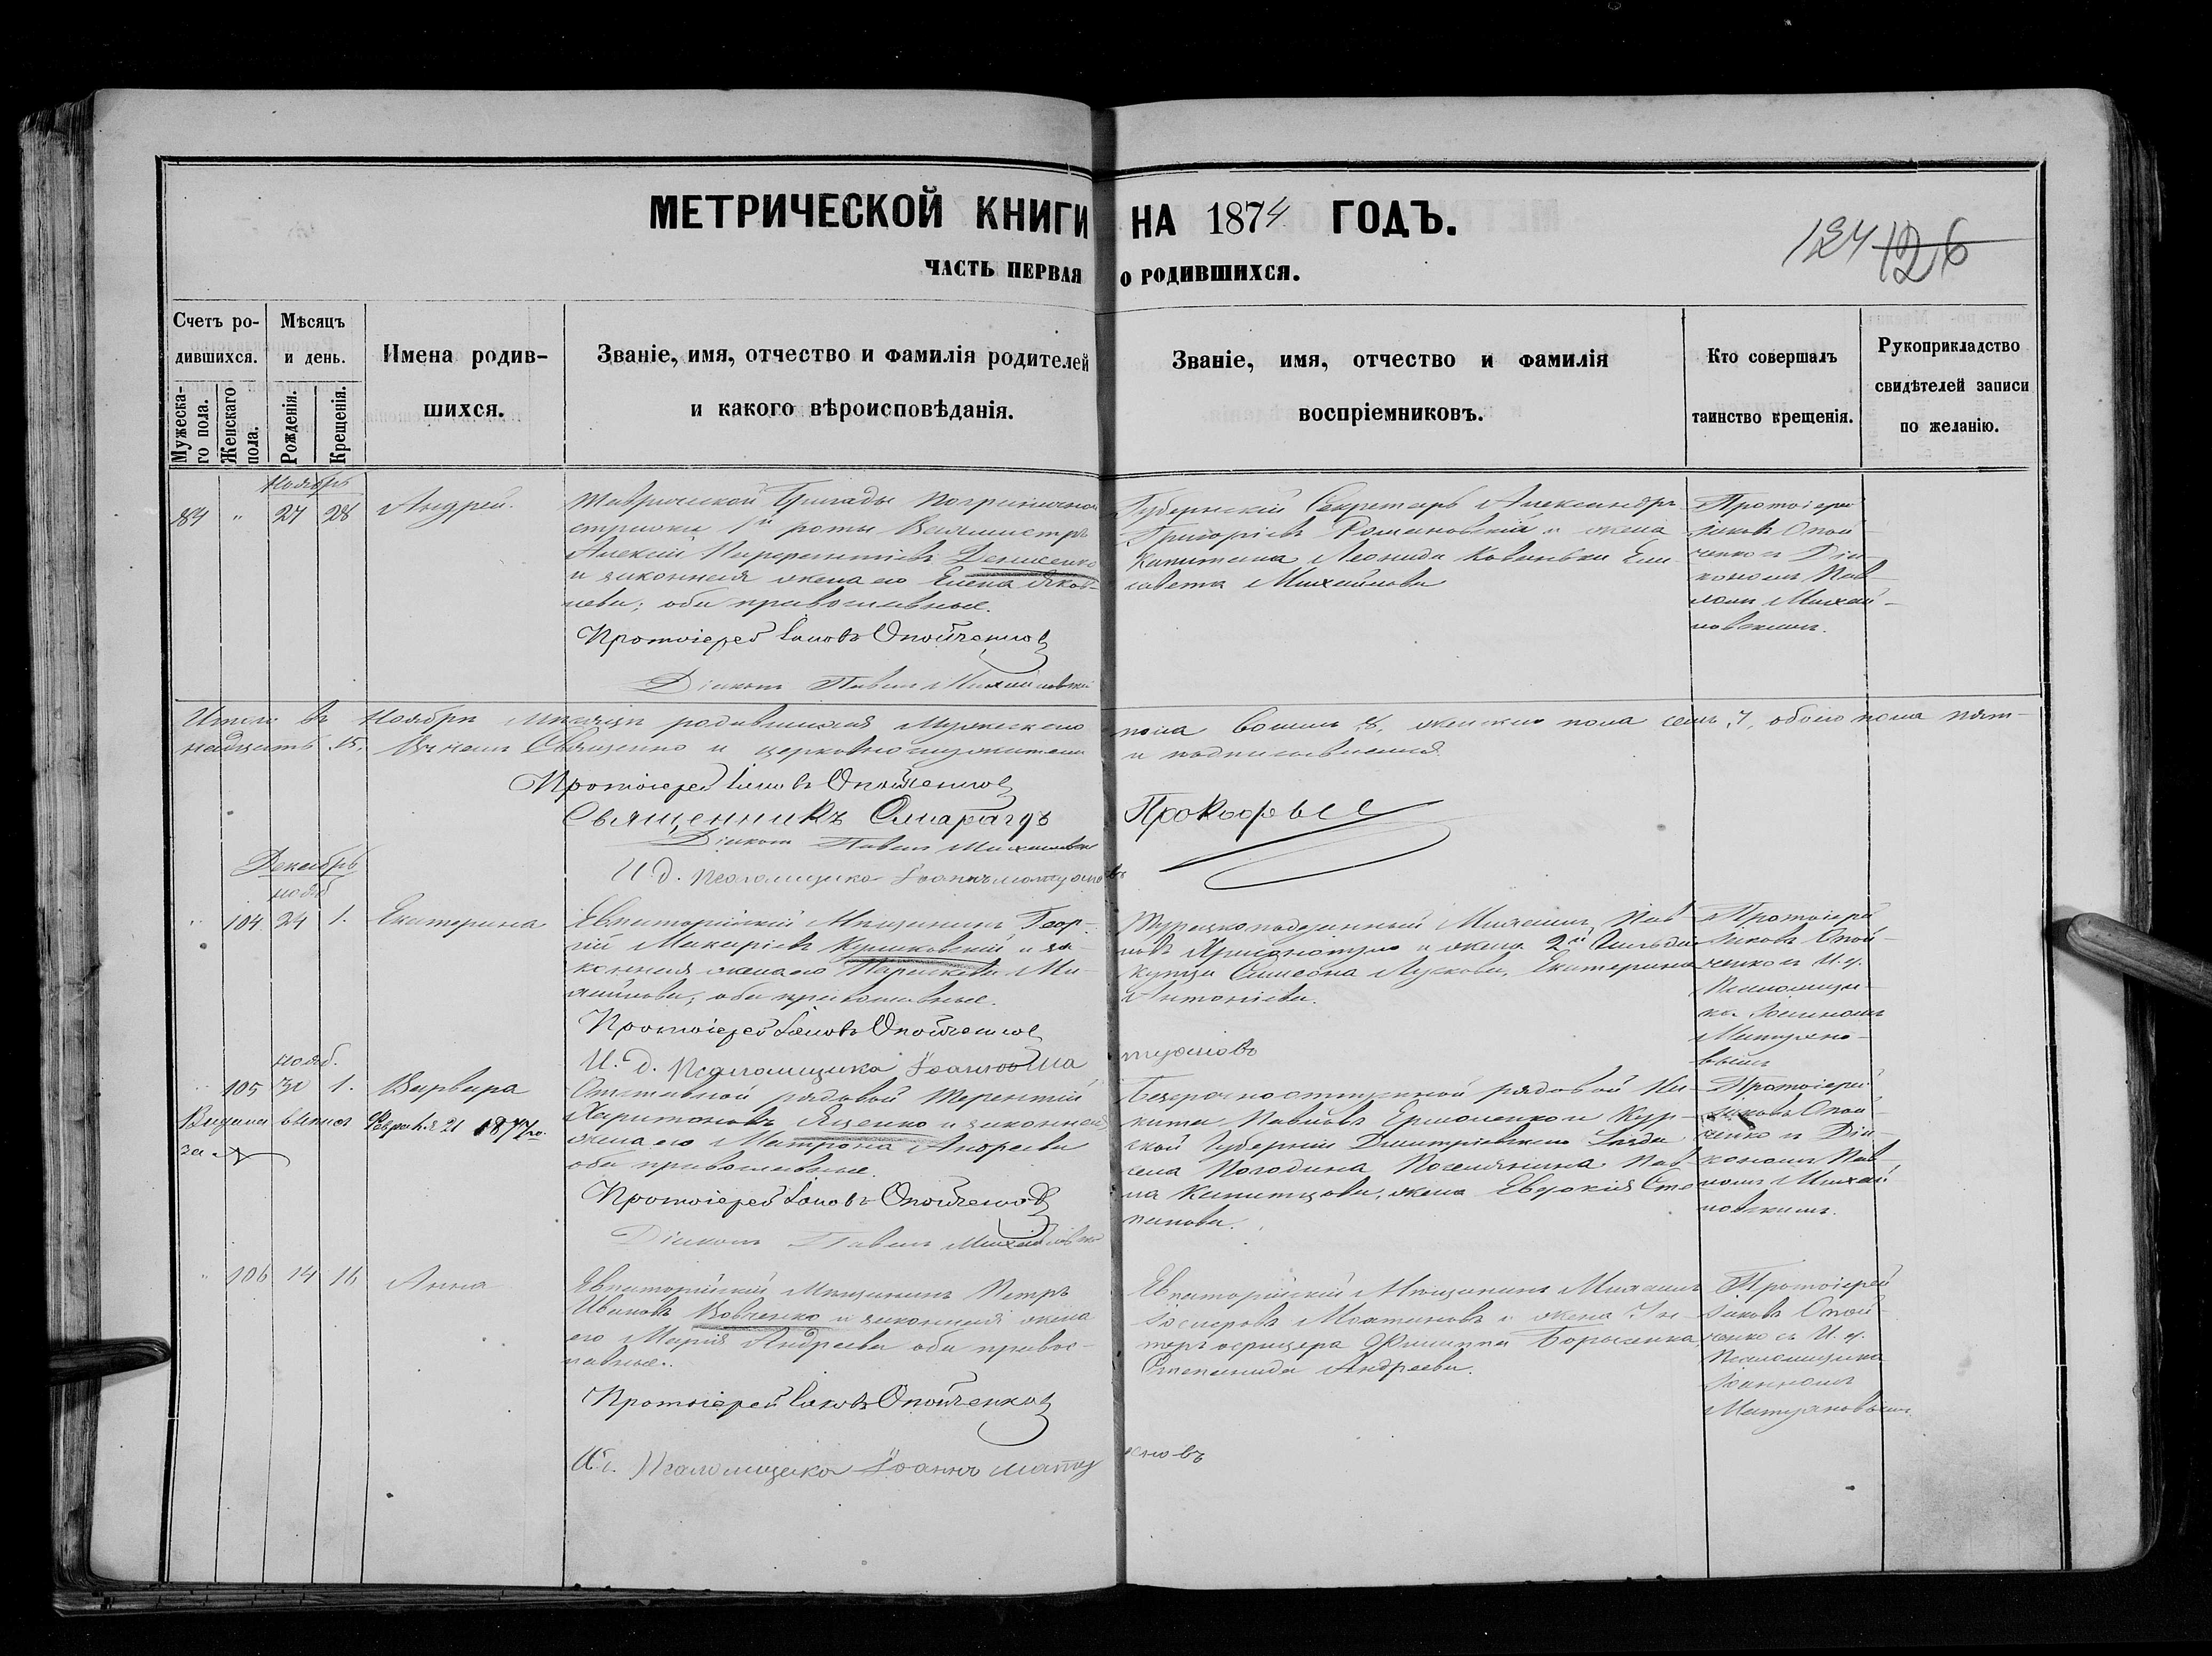 МЕТРИЧЕСКОЙ КНИГИ НА 1874 ГОДЪ.
124 126
ЧАСТЬ ПЕРВАЯ О РОДИВШИХСЯ.
Счетъ ро-
дившихся.
Мужеска-
го пола.
Женскаго
пола.
Мѣсяцъ
и день.
Рожденія.
Крещенія.
Имена родив-
шихся.
Званіе, имя, отчество и фамилія родителей
и какого вѣроисповѣданія.
Званіе, имя, отчество и фамилія
воспріемниковъ.
Кто совершалъ
таинство крещенія.
Рукоприкладство
свидѣтелей записи
по желанію.
Ноябрь
84 " 27 28 Андрей.
Таврической Бригады Пограничной
стражи 1й роты Вахмистръ
Алексій Денисенко
и законная жена его Елена Яков-
лева; оба православные.
Протоіерей Іаковъ Опойченковъ
Діаконъ Павелъ Михайловскій
Губернскій Секретарь Александръ
Григоріевъ Романовскій и жена
Капитана Леонида Ели-
савета Михайлова
Протоіерей
Іаковъ Опой-
ченко съ Діа-
кономъ Пав-
ломъ Михай-
ловскимъ.
Итого въ Ноябрѣ мѣсяцѣ родившихся Мужескаго пола восемь 8, женскаго пола семь 7, обоего пола пят-
надцать 15. Священно и церковнослужители и подписываемся
Протоіерей Іаковъ Опойченковъ
Священникъ Смарагдъ Прокофьев
Діаконъ Павелъ Михайловскій
И. д. Псаломщика Іоаннъ Матухновъ
Декабрь
нояб
" 104 24 1. Екатерина
Евпаторійскій Мѣщанинъ Геор-
гій Макаріевъ и за-
конная жена его Параскева Ми-
хайлова, оба православные.
Протоіерей Іаковъ Опойченковъ
И. д. Псаломщика Іоаннъ Матухновъ
Турецкоподданный Михаилъ Пав-
ловъ и жена 2й Гильдіи
Купца Симеона Екатерина
Антоніева.
Протоіерей
Іаковъ Опой-
ченко съ И. д.
Псаломщи-
ка Іоанномъ
Матухно-
вымъ
нояб.
" 105 30 1. Варвара
Выдана выпись Февраля 21 1877 го.
за №
Отставной рядовой Терентій
Харитоновъ Яценко и законная
жена его Матрона Андреева
оба православные.
Протоіерей Іаковъ Опойченковъ
Діаконъ Павелъ Михайловскій
Безсрочноотпускной рядовой Ни-
кита Павловъ Ермоленко и Кур-
ской Губерніи Дмитріевскаго Уѣзда
села Погодина Поселянина Пав-
ла жена Евдокія Сте-
панова.
Протоіерей
Іаковъ Опой-
ченко съ Діа-
кономъ Пав-
ломъ Михай-
ловскимъ.
" 106 14 16 Анна
Евпаторійскій Мѣщанинъ Петръ
Ивановъ Вовченко и законная жена
его Марія Андреева оба правос-
лавные.
Протоіерей Іаковъ Опойченковъ
И. д. Псаломщика Іоаннъ Матухновъ
Евпаторійскій Мѣщанинъ Михаилъ
Іосифовъ и жена Ун-
теръ офицера Филиппа Борисенка,
Степанида Андреева.
Протоіерей
Іаковъ Опой-
ченко съ И. д.
Псаломщика
Іоанномъ
Матухновымъ.